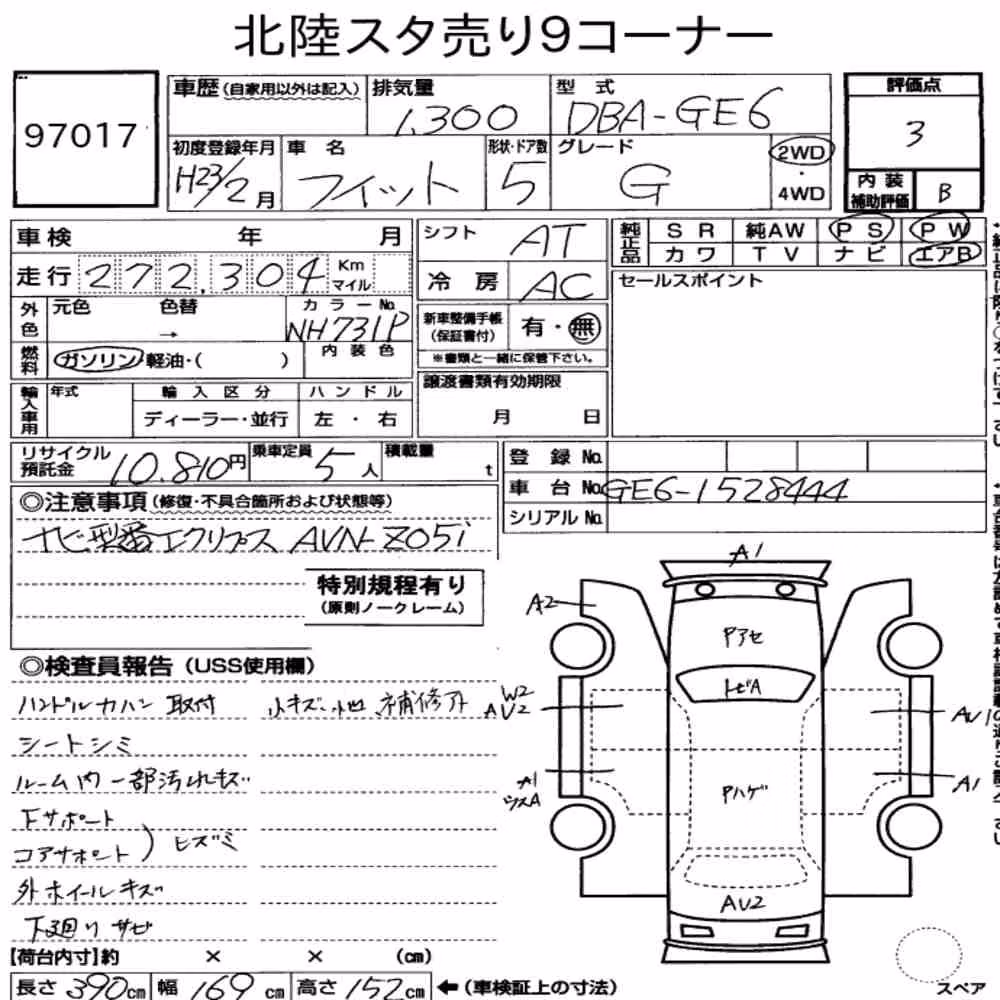 北陸スタ売り9コーナー
97017
車歴 (自家用以外は記入) 排気量 1,300 型式 DBA-GE6
評価点 3
初度登録年月 H23/2月 車名 フィット 形状・ドア数 5 グレード G 2WD・4WD
内装補助評価 B
車検 年 月
シフト AT
純正品 SR 純AW PS PW
カワ TV ナビ エアB
走行 272,304 Km マイル
冷房 AC
セールスポイント
外色 元色 色替 → カラーNo. NH731P
新車整備手帳 (保証書付) 有・無
※書類と一緒に保管下さい。
燃料 ガソリン 軽油・( ) 内装色
譲渡書類有効期限
月 日
輸入車用 年式 輸入区分 ハンドル
ディーラー・並行 左・右
リサイクル預託金 10,810円 乗車定員 5人 積載量 t
登録No.
車台No. GE6-1528444
シリアルNo.
◎注意事項 (修復・不具合箇所および状態等)
ナビ型番エクリプス AVN-Z05i
特別規程有り
(原則ノークレーム)
◎検査員報告 (USS使用欄)
ハンドルカバー取付 小キズ、他 補修有
シートシミ
ルーム内一部汚れキズ
Fサポート
コアサポート ) ヒズミ
外ホイールキズ
下廻りサビ
A1
A2
Pアセ
トビA
W2
AU2
AU1
A1
ウスA
A1
Pハゲ
AU2
スペア
【荷台内寸】約 × × (cm)
長さ 390cm 幅 169cm 高さ 152cm ←(車検証上の寸法)